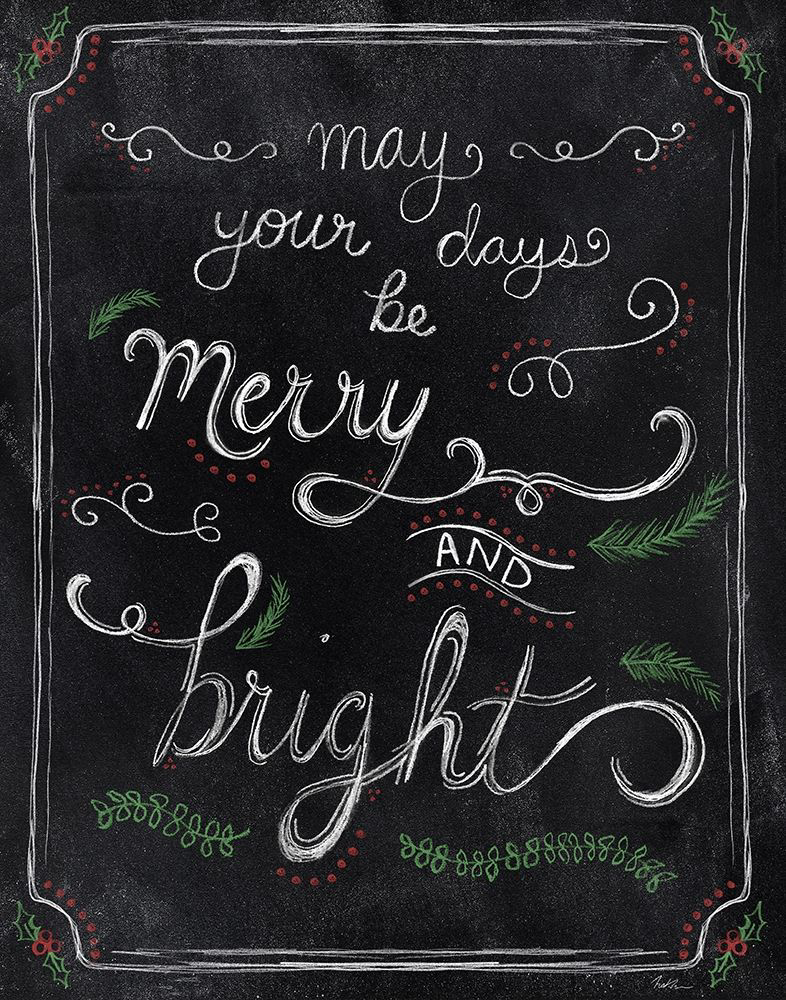 may
your days
be
Merry
AND
bright